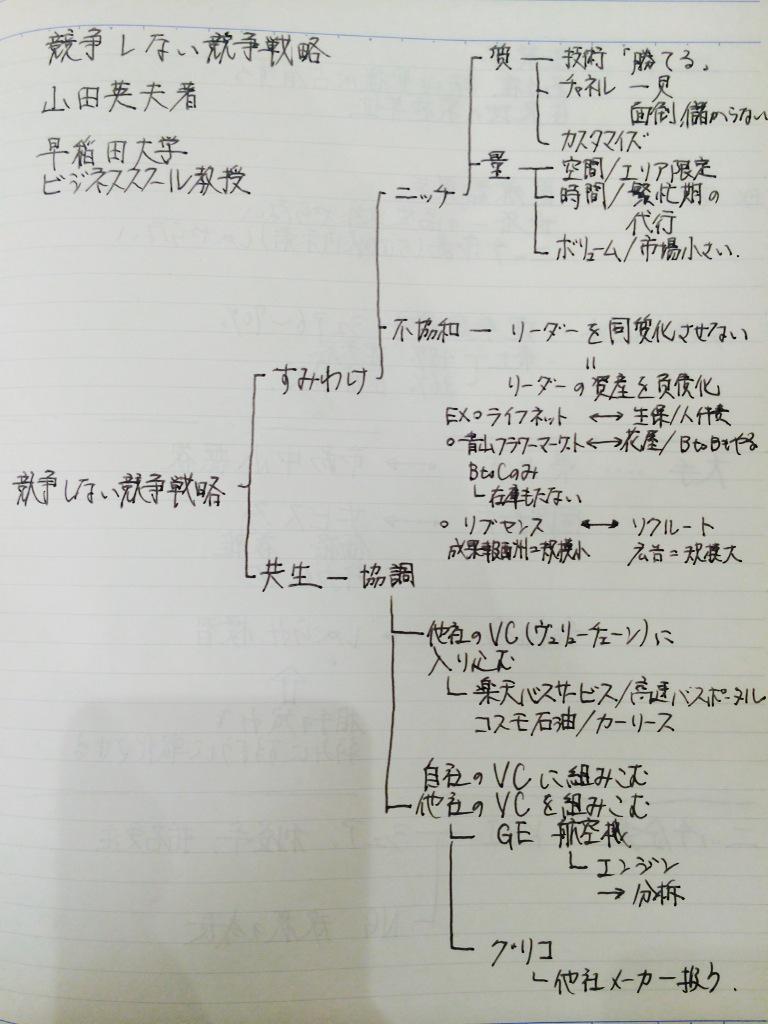 競争しない競争戦略
山田英夫著
早稲田大学
ビジネススクール教授
質 技術 「勝てる」
チャネル 一見
面倒、儲からない
カスタマイズ
量 空間/エリア限定
ニッチ
時間/繁忙期の
代行
ボリューム/市場小さい.
不協和 リーダーを同質化させない
=
すみわけ
リーダーの資産を負債化
EX○ライフネット ↔ 生保/人件費
○青山フラワーマーケット↔花屋/BtoBもやる
BtoCのみ
在庫もたない
競争しない競争戦略
○ リブセンス ↔ リクルート
成果報酬=規模小 広告=規模大
共生 協調
他社のVC(ヴァリューチェーン)に
入り込む
楽天バスサービス/高速バスポータル
コスモ石油/カーリース
自社のVCに組みこむ
他社のVCを組みこむ
GE 航空機
エンジン
→ 分析
グリコ
他社メーカー扱う.